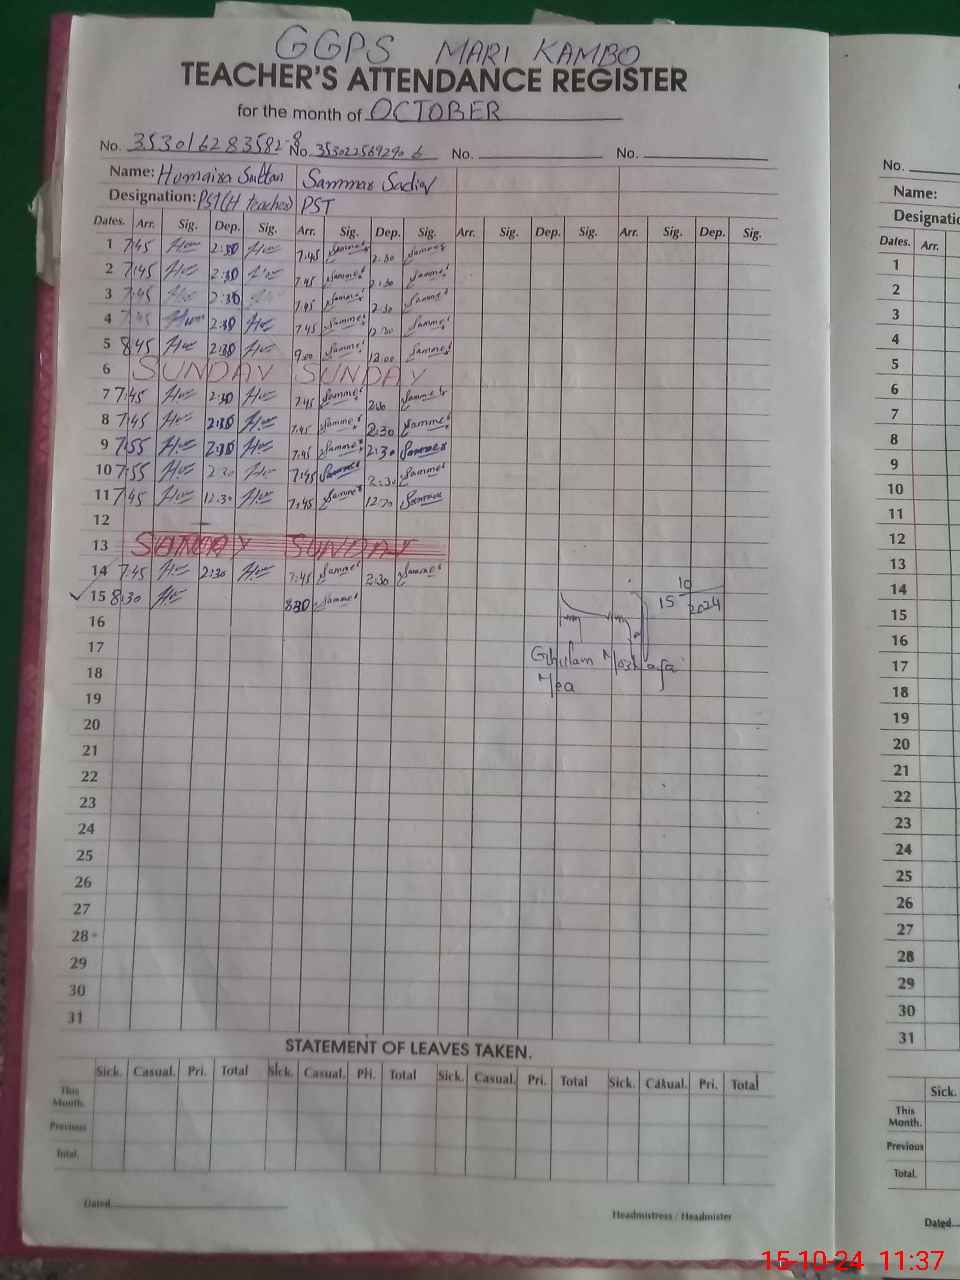 GGPS MARI KAMBO
TEACHER'S ATTENDANCE REGISTER
for the month of OCTOBER
No. 3530162835828 No. 3530225692906 No. No.
Name: Humaira Sultan Sammar Sadiq
Designation: PST (H teacher) PST
Dates. Arr. Sig. Dep. Sig. Arr. Sig. Dep. Sig. Arr. Sig. Dep. Sig. Arr. Sig. Dep. Sig.
1 7:45 2:30 7:45 2:30
2 7:45 2:30 7:45 2:30
3 7:45 2:30 7:45 2:30
4 7:45 2:30 7:45 12:30
5 8:45 2:30 9:00 12:00
6 SUNDAY SUNDAY
7 7:45 2:30 7:45 2:30
8 7:45 2:30 7:45 2:30
9 7:55 2:30 7:45 2:30
10 7:55 2:30 7:45 2:30
11 7:45 12:30 7:45 12:30
12
13 SUNDAY SUNDAY
14 7:45 2:30 7:45 2:30
15 8:30 8:30
15 10 2024
16
17
Ghulam Mustafa
18
Mea
19
20
21
22
23
24
25
26
27
28
29
30
31
STATEMENT OF LEAVES TAKEN.
Sick. Casual. Pri. Total Sick. Casual. Pri. Total Sick. Casual. Pri. Total Sick. Casual. Pri. Total
This Month.
Previous
Total.
Dated
Headmistress / Headmister
No.
Name:
Designatio
Dates. Arr.
1
2
3
4
5
6
7
8
9
10
11
12
13
14
15
16
17
18
19
20
21
22
23
24
25
26
27
28
29
30
31
Sick.
This Month.
Previous
Total.
Dated
15-10-24 11:37